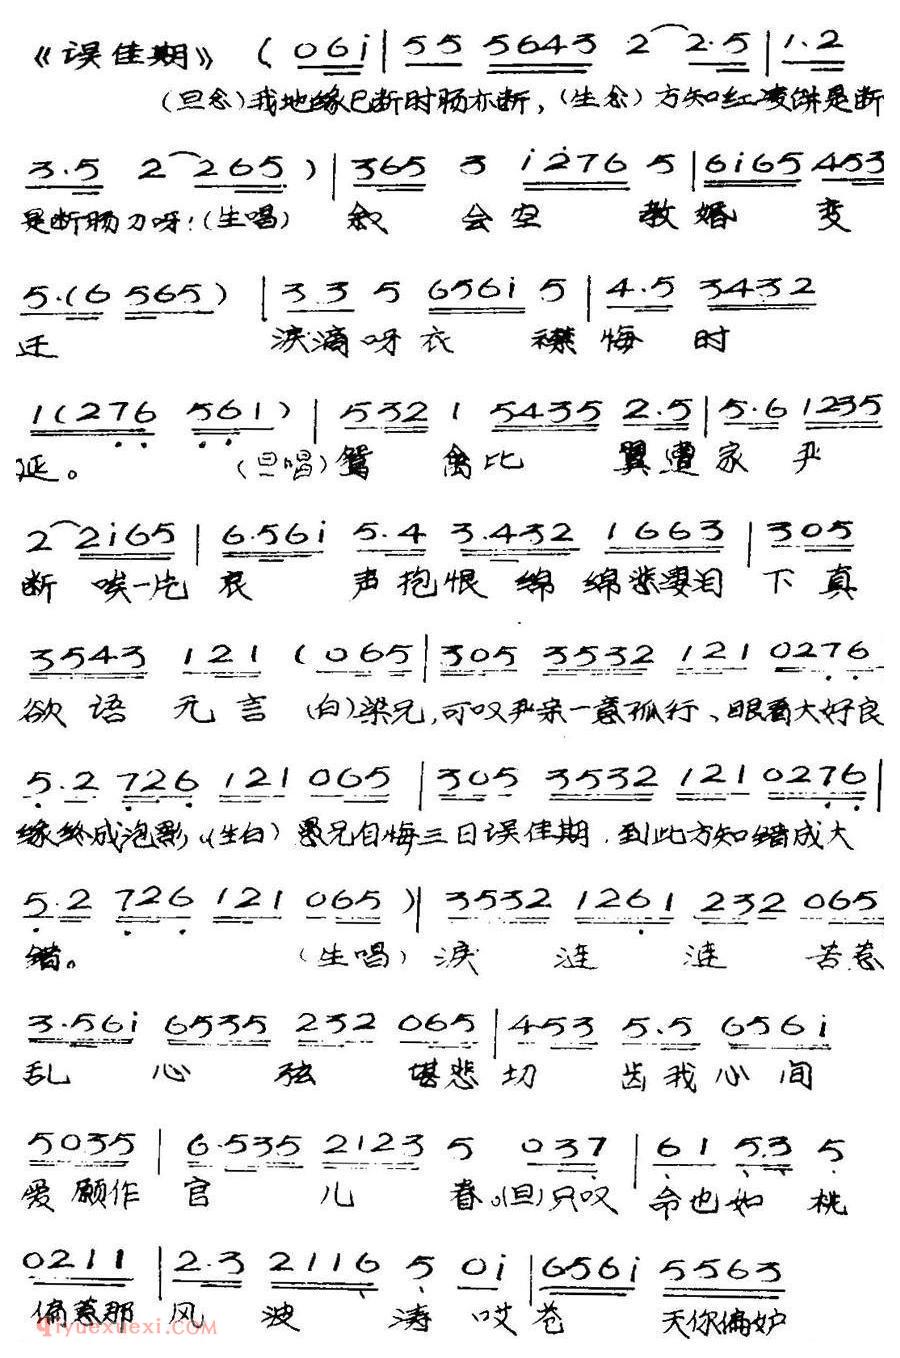 《误佳期》 (06i|55 5643 2 2·5|1·2
(旦念)我地缘已断时肠亦断，(生念)方知红凌饼是断
3·5 2 265)|365 3 i276 5|6i65 453
是断肠刀呀!(生唱) 我 会空 教婚 变
5·(6 565)|3·3 5 656i 5|4·5 3432
迁 泪滴呀衣 襟悔时
1(276 561)|532 1 5435 2·5|5·6 1235
延。 (旦唱)鸳 禽比 翼遭家 严
2 2i65|6·56i 5·4 3·432 1663|305
断 唉一片 哀 声抱恨 绵 绵悲凄泪 下真
3543 121 (065|305 3532 121 0276
欲语无言 (白)梁兄，可叹严亲一意孤行、眼看大好良
5·2 726 121 065|305 3532 121 0276|
缘终成泡影，(生白)愚兄自悔三日误佳期，到此方知错成大
5·2 726 121 065)|3532 1261 232 065
错。 (生唱)泪 涟 涟 苦惹
3·56i 6535 232 065|453 5·5 656i
乱 心 弦 堪悲切 齿我心间
5035|6·535 2123 5 037|61 5·3 5
爱 愿作 官 儿 眷。(旦)只叹 命也如 桃
0211|2·3 2116 5 0i|656i 5563
偏惹那 风 波 涛 哎苍 天你偏妒
qiyuexuexi.com